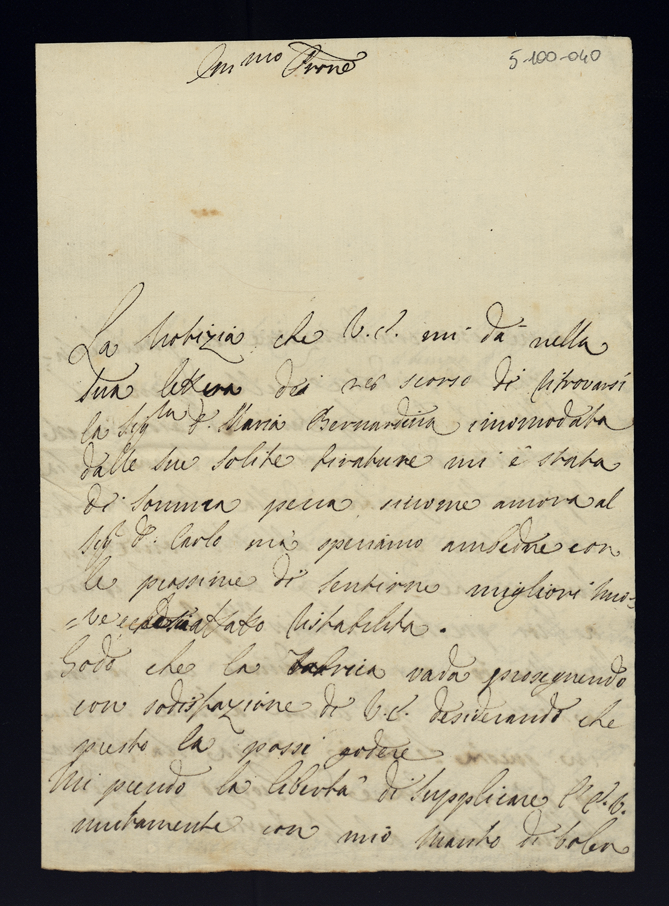 5-100-040
Am.mo Prone
La Notizia che V.S. mi dà nella
sua lettera dei 26 scorso di ritrovarsi
la Sig.ra D. Maria Bernardina incomodata
dalle sue solite tirature mi è stata
di somma pena siccome ancora al
Sig.r D. Carlo mà speriamo ambedue con
le prossime di sentirne migliori nuo=
=ve affatto ristabilita.
Godo che la fabrica vada proseguendo
con sodisfazione di V.S. desiderando che
presto la possi godere
Mi prendo la libertà di supplicare
unitamente con mio Marito di voler